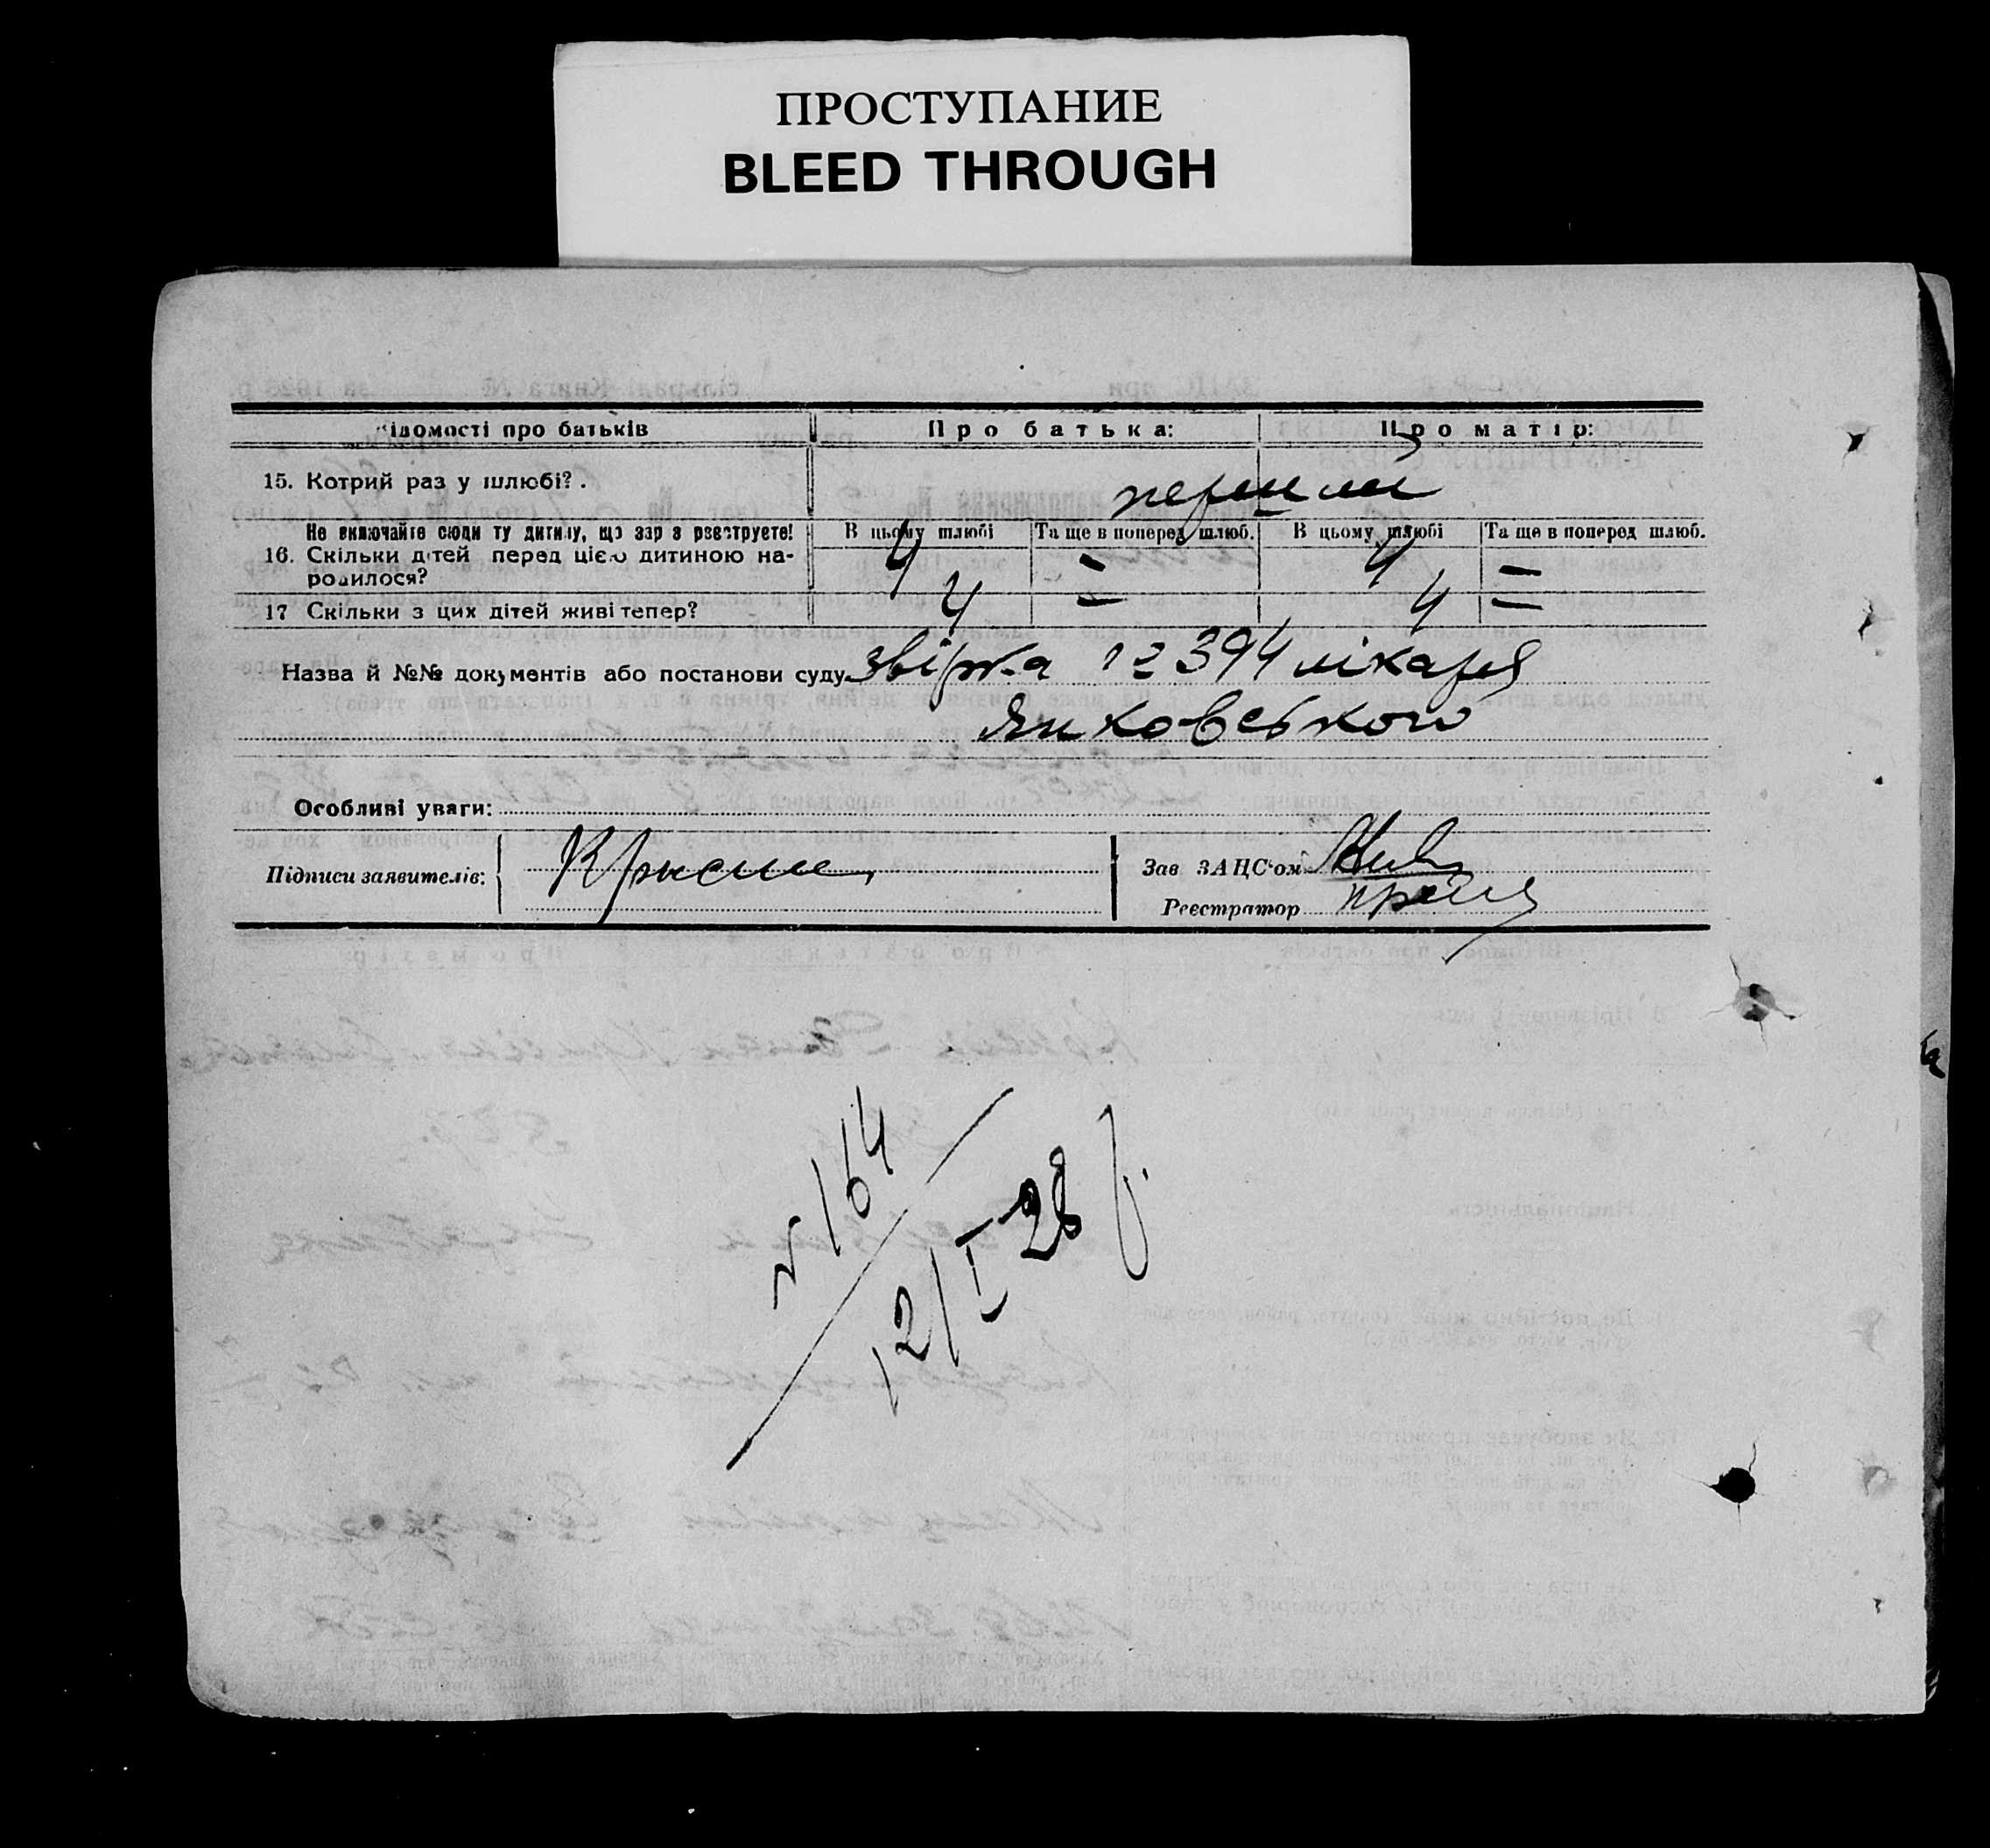 ПРОСТУПАНИЕ
BLEED THROUGH
Відомості про батьків Про батька: Про матір:
15. Котрий раз у шлюбі? . перший
Не включайте сюди ту дитину, що зараз реєструєте! В цьому шлюбі Та ще в поперед. шлюб. В цьому шлюбі Та ще в поперед. шлюб.
16. Скільки дітей перед цією дитиною на-
родилося? 4 = 4 =
17 Скільки з цих дітей живі тепер? 4 = 4 =
Назва й №№ документів або постанови суду 12394 лікаря
Янковського
Особливі уваги:
Підписи заявителів:
Зав ЗАЦС'ом
Реєстратор
№ 164
12/I 28 р.